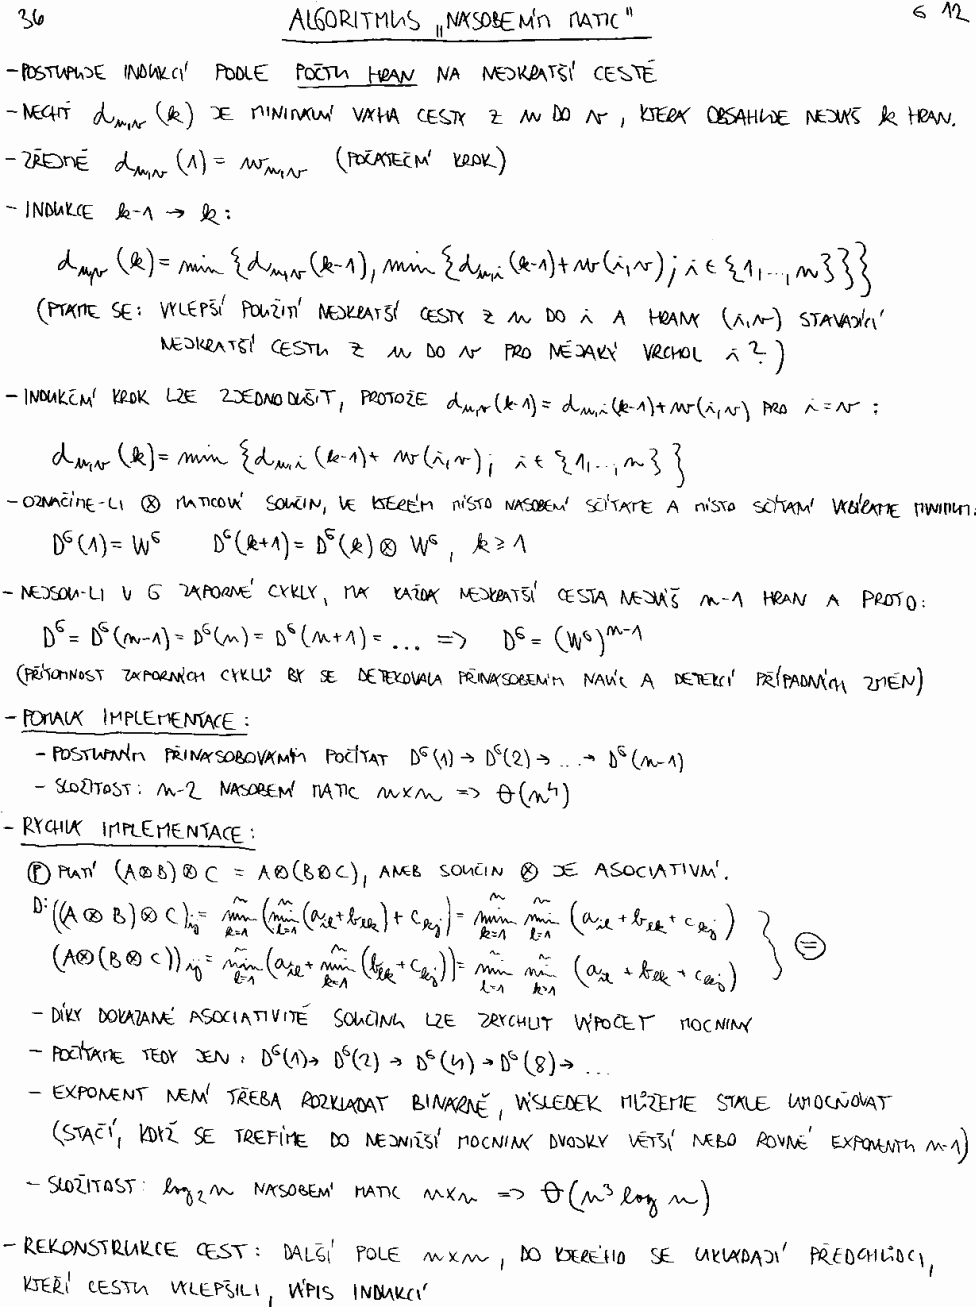 36 ALGORITMUS „NÁSOBENÍM MATIC" G 12
- POSTUPUJE INDUKCÍ PODLE POČTU HRAN NA NEJKRATŠÍ CESTĚ
- NECHŤ d_{u,v}(k) JE MINIMÁLNÍ VÁHA CESTY Z u DO v, KTERÁ OBSAHUJE NEJVÝŠ k HRAN.
- ZŘEJMĚ d_{u,v}(1) = w_{u,v} (POČÁTEČNÍ KROK)
- INDUKCE k-1 → k:
d_{u,v}(k) = min {d_{u,v}(k-1), min {d_{u,i}(k-1) + w(i,v); i ∈ {1,...,n}}}
(PTÁME SE: VYLEPŠÍ POUŽITÍ NEJKRATŠÍ CESTY Z u DO i A HRANY (i,v) STÁVAJÍCÍ
NEJKRATŠÍ CESTU Z u DO v PRO NĚJAKÝ VRCHOL i?)
- INDUKČNÍ KROK LZE ZJEDNODUŠIT, PROTOŽE d_{u,v}(k-1) = d_{u,i}(k-1) + w(i,v) PRO i = v:
d_{u,v}(k) = min {d_{u,i}(k-1) + w(i,v); i ∈ {1,...,n}}
- OZNAČÍME-LI ⊗ MATICOVÝ SOUČIN, VE KTERÉM MÍSTO NÁSOBENÍ SČÍTÁME A MÍSTO SČÍTÁNÍ VYBÍRÁME MINIMUM:
D^G(1) = W^G D^G(k+1) = D^G(k) ⊗ W^G, k ≥ 1
- NEJSOU-LI V G ZÁPORNÉ CYKLY, MÁ KAŽDÁ NEJKRATŠÍ CESTA NEJVÝŠ n-1 HRAN A PROTO:
D^G = D^G(n-1) = D^G(n) = D^G(n+1) = ... => D^G = (W^G)^{n-1}
(PŘÍTOMNOST ZÁPORNÝCH CYKLŮ BY SE DETEKOVALA PŘINÁSOBENÍM NAVÍC A DETEKCÍ PŘÍPADNÝCH ZMĚN)
- POMALÁ IMPLEMENTACE:
- POSTUPNÝM PŘINÁSOBOVÁNÍM POČÍTAT D^G(1) → D^G(2) → ... → D^G(n-1)
- SLOŽITOST: n-2 NÁSOBENÍ MATIC n×n => Θ(n^4)
- RYCHLÁ IMPLEMENTACE:
Ⓟ PLATÍ (A⊗B)⊗C = A⊗(B⊗C), ANEB SOUČIN ⊗ JE ASOCIATIVNÍ.
D: ((A⊗B)⊗C)_{ij} = min_{k=1}^n (min_{l=1}^n (a_{il} + b_{lk}) + c_{kj}) = min_{k=1}^n min_{l=1}^n (a_{il} + b_{lk} + c_{kj})
(A⊗(B⊗C))_{ij} = min_{l=1}^n (a_{il} + min_{k=1}^n (b_{lk} + c_{kj})) = min_{l=1}^n min_{k=1}^n (a_{il} + b_{lk} + c_{kj}) } ⊜
- DÍKY DOKÁZANÉ ASOCIATIVITĚ SOUČINU LZE ZRYCHLIT VÝPOČET MOCNINY
- POČÍTÁME TEDY JEN: D^G(1) → D^G(2) → D^G(4) → D^G(8) → ...
- EXPONENT NENÍ TŘEBA ROZKLÁDAT BINÁRNĚ, VÝSLEDEK MŮŽEME STÁLE UMOCŇOVAT
(STAČÍ, KDYŽ SE TREFÍME DO NEJNIŽŠÍ MOCNINY DVOJKY VĚTŠÍ NEBO ROVNÉ EXPONENTU n-1)
- SLOŽITOST: log_2 n NÁSOBENÍ MATIC n×n => Θ(n^3 log n)
- REKONSTRUKCE CEST: DALŠÍ POLE n×n, DO KTERÉHO SE UKLÁDAJÍ PŘEDCHŮDCI,
KTEŘÍ CESTU VYLEPŠILI, VÝPIS INDUKCÍ